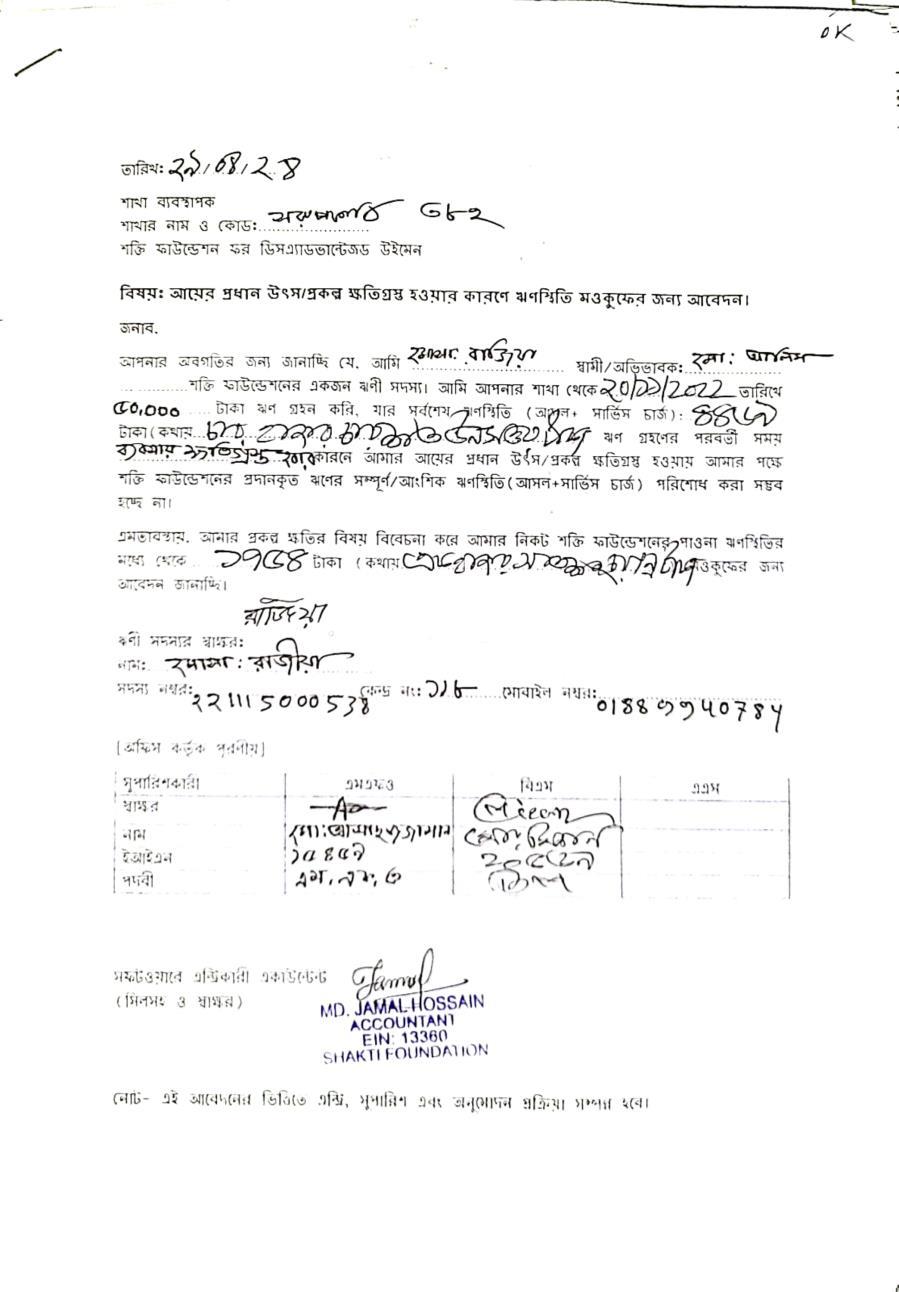 OK
তারিখ: ২৯/০৪/২৪
শাখা ব্যবস্থাপক
শাখার নাম ও কোড:
শক্তি ফাউন্ডেশন ফর ডিসএ্যাডভান্টেজড উইমেন
বিষয়: আয়ের প্রধান উৎস/প্রকল্প ক্ষতিগ্রস্ত হওয়ার কারণে ঋণস্থিতি মওকুফের জন্য আবেদন।
জনাব,
আপনার অবগতির জন্য জানাচ্ছি যে, আমি মোসা: রাজিয়া স্বামী/অভিভাবক: মো: আনিস
শক্তি ফাউন্ডেশনের একজন ঋণী সদস্য। আমি আপনার শাখা থেকে ২০/১১/২০২২ তারিখে
৫০,০০০ টাকা ঋণ গ্রহন করি, যার সর্বশেষ ঋণস্থিতি (আসল+ সার্ভিস চার্জ):
টাকা (কথায় চার হাজার চারশত টাকা ঋণ গ্রহণের পরবর্তী সময়
ব্যবসায় ক্ষতিগ্রস্ত কারনে আমার আয়ের প্রধান উৎস/প্রকল্প ক্ষতিগ্রস্ত হওয়ায় আমার পক্ষে
শক্তি ফাউন্ডেশনের প্রদানকৃত ঋণের সম্পূর্ণ/আংশিক ঋণস্থিতি(আসল+সার্ভিস চার্জ) পরিশোধ করা সম্ভব
হচ্ছে না।
এমতাবস্থায়, আমার প্রকল্প ক্ষতির বিষয় বিবেচনা করে আমার নিকট শক্তি ফাউন্ডেশনের পাওনা ঋণস্থিতির
মধ্যে থেকে ১৭৫৪ টাকা (কথায় মওকুফের জন্য
আবেদন জানাচ্ছি।
রাজিয়া
ঋণী সদস্যর স্বাক্ষর:
নাম: মোসা: রাজীয়া
সদস্য নম্বর: 221115000538 কেন্দ্র নং: ১১৮ মোবাইল নম্বর:
[অফিস কর্তৃক পূরণীয়]
সুপারিশকারী এমএফও বিএম এএম
স্বাক্ষর
নাম মো: আসাদুজ্জামান মো:
ইআইএন
পদবী এম.এফ.ও বিএম
সফটওয়ারে এন্ট্রিকারী একাউন্টেন্ট Jamal
(সিলসহ ও স্বাক্ষর)
MD. JAMAL HOSSAIN
ACCOUNTANT
EIN: 13360
SHAKTI FOUNDATION
নোট- এই আবেদনের ভিত্তিতে এন্ট্রি, সুপারিশ এবং অনুমোদন প্রক্রিয়া সম্পন্ন হবে।